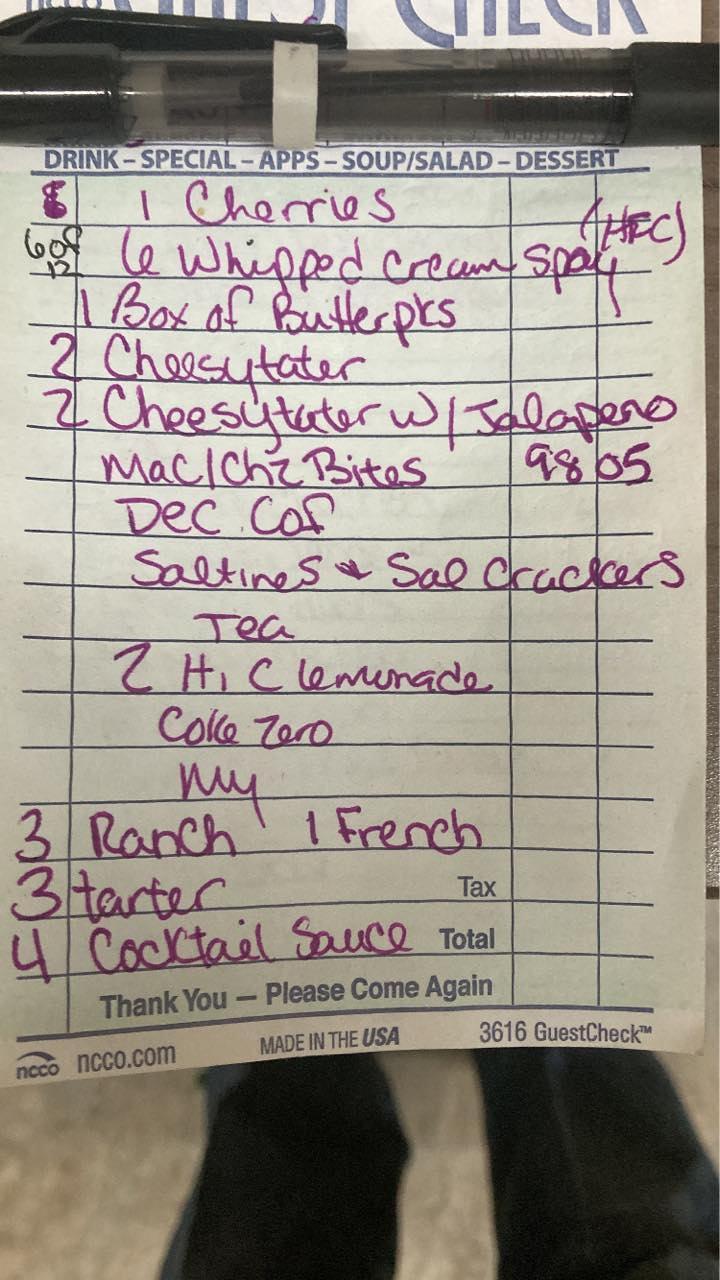 GUEST CHECK
DRINK – SPECIAL – APPS – SOUP/SALAD – DESSERT
1 Cherries
6 of 12 6 Whipped Cream Spay (HFC)
1 Box of Butter pks
2 Cheesytater
2 Cheesytater w/ Jalapeno
Mac/Chz Bites 98 05
Dec. Cof
Saltines & Sal Crackers
Tea
2 Hi C lemonade
Coke Zero
3 Ranch 1 French
3 tarter Tax
4 Cocktail Sauce Total
Thank You – Please Come Again
ncco ncco.com MADE IN THE USA 3616 GuestCheck™